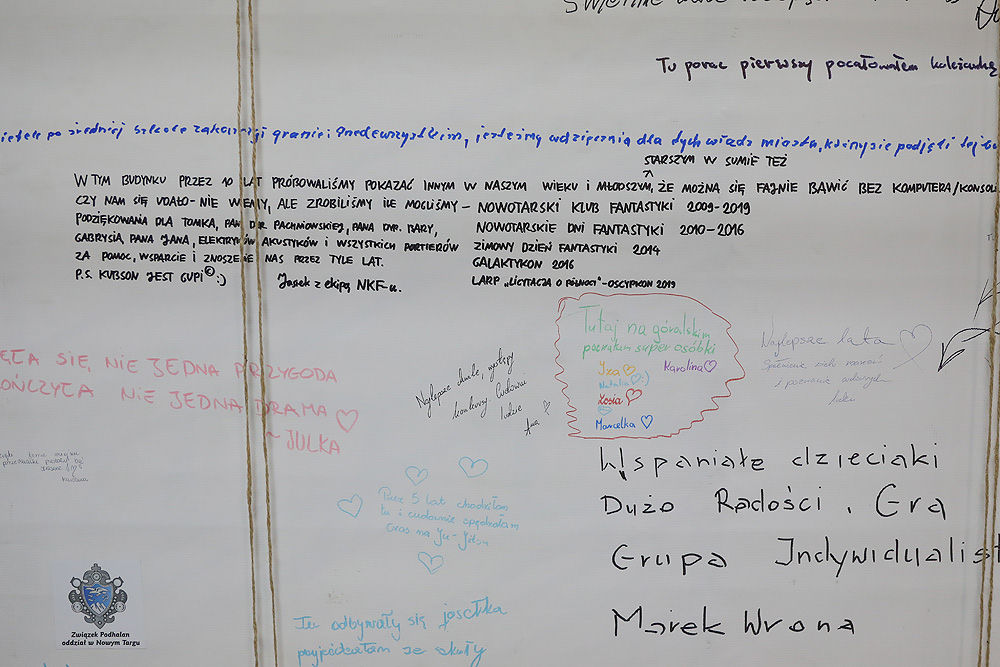 Tu poraz pierwszy pocałowałem koleżankę
po średniej szkole
jesteśmy wdzięcznią dla tych władz miasta, którzy się podjęli tej
STARSZYM W SUMIE TEŻ
W TYM BUDYNKU PRZEZ 10 LAT PRÓBOWALIŚMY POKAZAĆ INNYM W NASZYM WIEKU I MŁODSZYM, ŻE MOŻNA SIĘ FAJNIE BAWIĆ BEZ KOMPUTERA/KONSOLI
CZY NAM SIĘ UDAŁO - NIE WIEMY, ALE ZROBILIŚMY ILE MOGLIŚMY - NOWOTARSKI KLUB FANTASTYKI 2009-2019
PODZIĘKOWANIA DLA TOMKA, PANI DYR. PACHNIOWSKIEJ, PANA DYR. BARY,
NOWOTARSKIE DNI FANTASTYKI 2010-2016
GABRYSIA, PANA JANA, ELEKTRYKÓW AKUSTYKÓW I WSZYSTKICH PORTIERÓW
ZIMOWY DZIEŃ FANTASTYKI 2014
ZA POMOC, WSPARCIE I ZNOSZENIE NAS PRZEZ TYLE LAT.
GALAKTYKON 2016
P.S. KUBSON JEST GUPI © :)
Jasek z ekipą NKF-u.
LARP „LICYTACJA O PÓŁNOCI" - OSCYPKON 2019
Tutaj na góralskim
poznałam super osóbki
Iza
Karolina
Natalia :)
Zosia
Marcelka
Najlepsze lata
Spełnienie
i poznanie
Najlepsze chwile, występy
konkursy, cudowni
ludzie
Ana
ĘŁA SIĘ NIE JEDNA PRZYGODA
OŃCZYŁA NIE JEDNA DRAMA
~ JULKA
Przez 5 lat chodziłam
tu i cudownie spędzałam
czas na Ju-Jitsu
Wspaniałe dzieciaki
Dużo Radości, Gra
Grupa Indywidualist
Marek Wrona
Tu odbywały się jasełka
przyjeżdżałam ze szkoły
Związek Podhalan
oddział w Nowym Targu